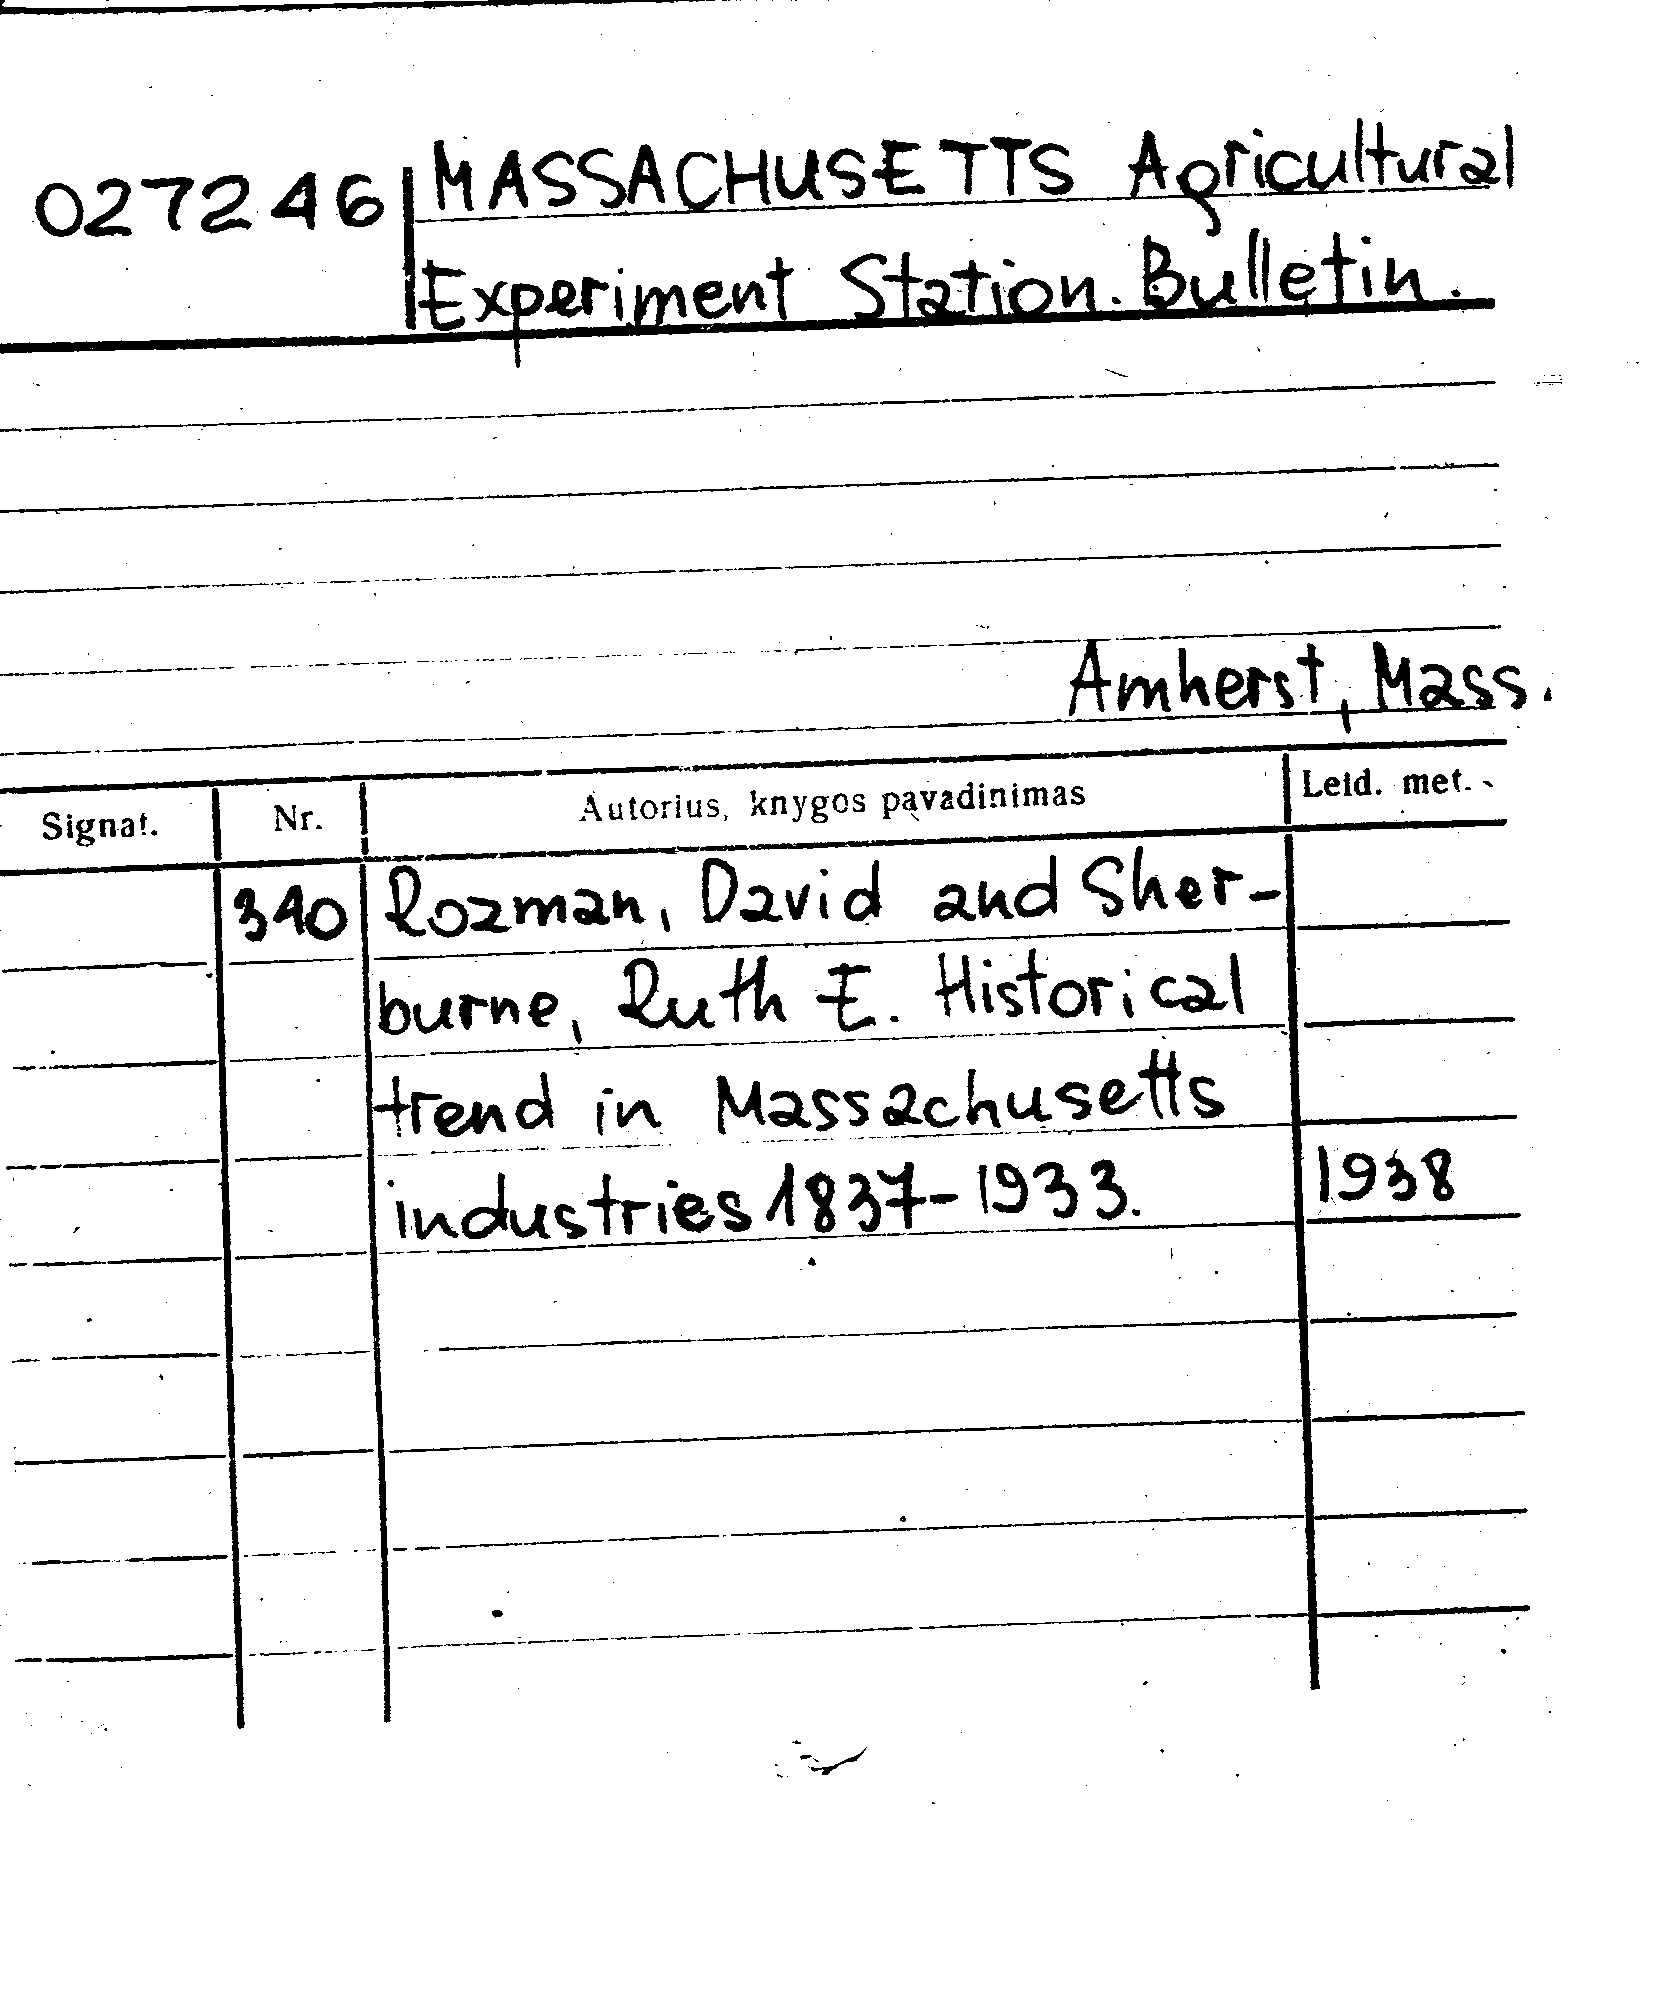 027246 MASSACHUSETTS Agricultural
Experiment Station. Bulletin.
Amherst, Mass.
Signat. Nr. Autorius, knygos pavadinimas Leid. met.
340 Rozman, David and Sher-
burne, Ruth E. Historical
trend in Massachusetts
industries 1837-1933. 1938